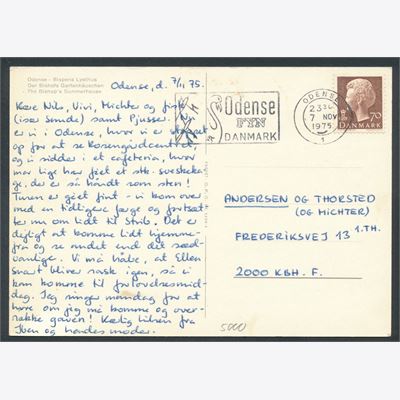 Odense - Bispens Lysthus
Der Bischofs Gartenhäuschen
The Bishop's Summerhouse
Odense, d. 7/11 75.
Kære Nils, Vivi, Michter og fisk
(især sende) samt Pjusser. Nu
er vi i Odense, hvor vi er stoppet
op for at se Rosengårdcentret,
og vi sidder i et cafeteria, hvor
mor lige har fået et stk. sveskekage,
der er så hårdt som sten!
Turen er gået fint - vi kom over
med en tidligere færge og fortsæt-
ter nu om lidt til Strib. Det er
dejligt at komme lidt hjemme-
fra og se andet end det sæd-
vanlige. Vi må håbe, at Ellen
snart bliver rask igen, så vi
kan komme til forlovelsesmid-
dag. Jeg ringer mandag for at
høre om jeg må komme og over-
række gaven! Kærlig hilsen fra
Iben og hendes moder.
Odense
FYN
DANMARK
ODENSE
23
7 NOV
1975
DANMARK 70
ANDERSEN OG THORSTED
(OG MICHTER)
FREDERIKSVEJ 13 1.TH.
2000 KBH. F.
5000